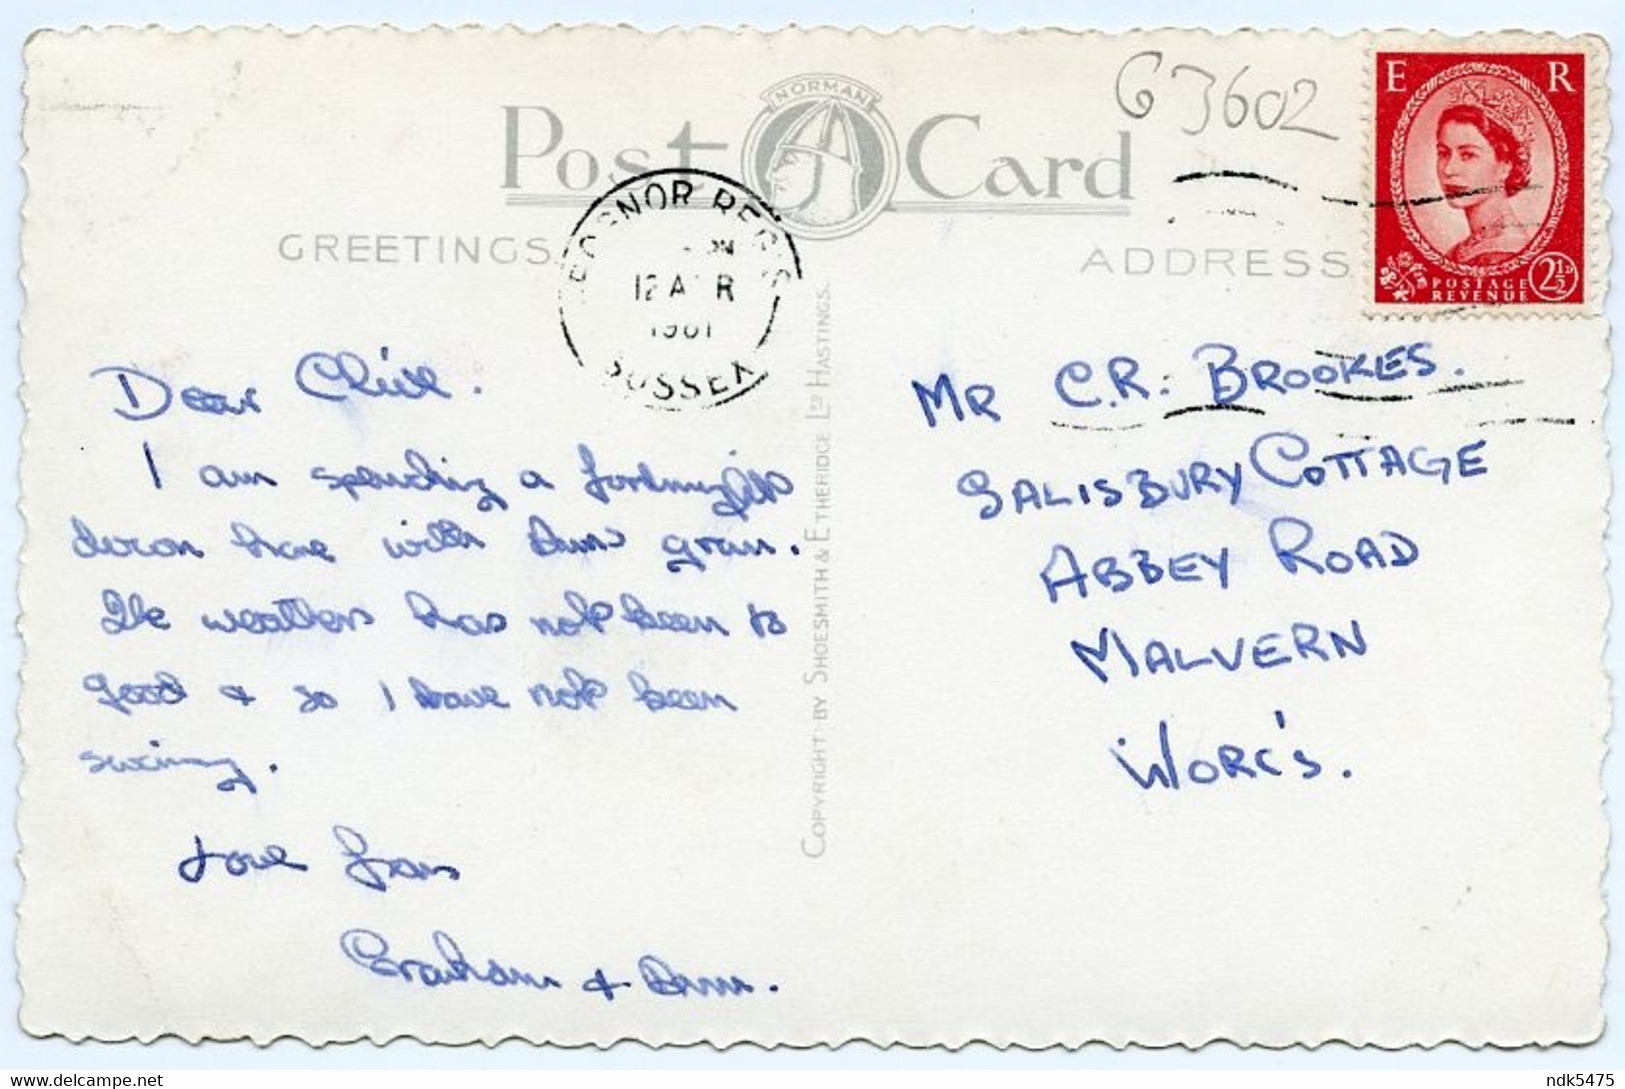 Post Card
NORMAN
G3602
E R
POSTAGE
REVENUE
2½D
GREETINGS
ADDRESS
BOGNOR REGIS
12 APR
1961
SUSSEX
Dear Clive.
I am spending a fortnight
down here with Ann's gran.
The weather has not been to
good & so I have not been
swiming.
Love from
Graham & Ann.
COPYRIGHT BY SHOESMITH & ETHERIDGE LTD HASTINGS.
MR C.R. BROOKES.
SALISBURY COTTAGE
ABBEY ROAD
MALVERN
WORC'S.
ndk5475